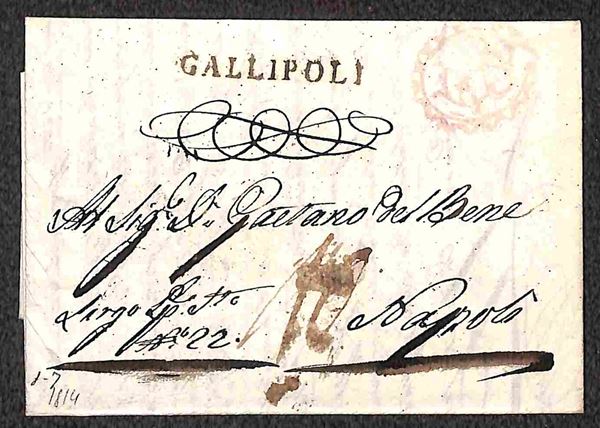 GALLIPOLI
Al Sig.e D. Gaetano del Bene
Largo
N.o 22.
Napoli
1-7
1814